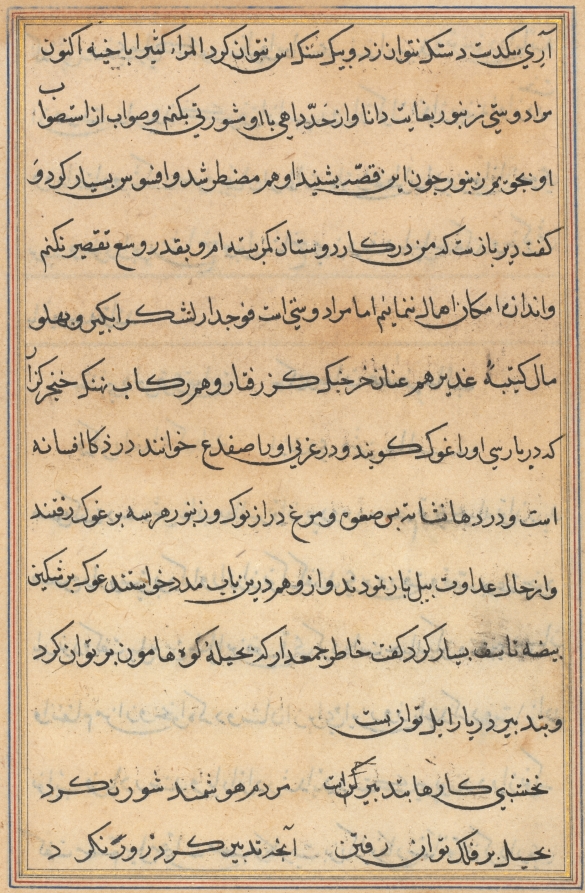 آری بیکدست دستک نتوان زد و بیک سنک اس نتوان کرد المراء کثیر اباخیه اکنون
مراد وستی زنبور بغایت دانا و از حد داهی بااو مشورتی بکنم و صواب از استصواب
او بجویم زنبور جون این قصّه بشنید او هم مضطر شد و افسوس بسیار کرد و
کفت دیر باز ست که من در کار دوستان کمر بسته ام و بقدر وسع تقصیر نکنم
واندازه امکان اهمال ننمایم اما مرا دوستی است فوجدار لشکر ابکیر و بهلو
مال کتیبهٔ غدیر هم عنان خرجنک کز رفتار و هم رکاب نهنک خنجر کزار
که در پارسی او را غوک کویند و در عربی او را ضفدع خوانند در ذکا افسانه
است و در دها نشانه بس صعوه و مرغ دراز نوک و زنبور هر سه بر غوک رفتند
و از حال عداوت بیل باز نمودند و ازو هم درین باب مدد خواستند غوک بر شکستن
بیضه تاسف بسیار کرد کفت خاطر جمعدار که بحیلهٔ کوه هامون می توان کرد
و بتدبیر دریا را بل توان بست
نخشبی کارها بتدبیر است مردم هوشمند شورت کرد
بحیل بر فلک توان رفتن آنجه تدبیر کرد زور نکرد